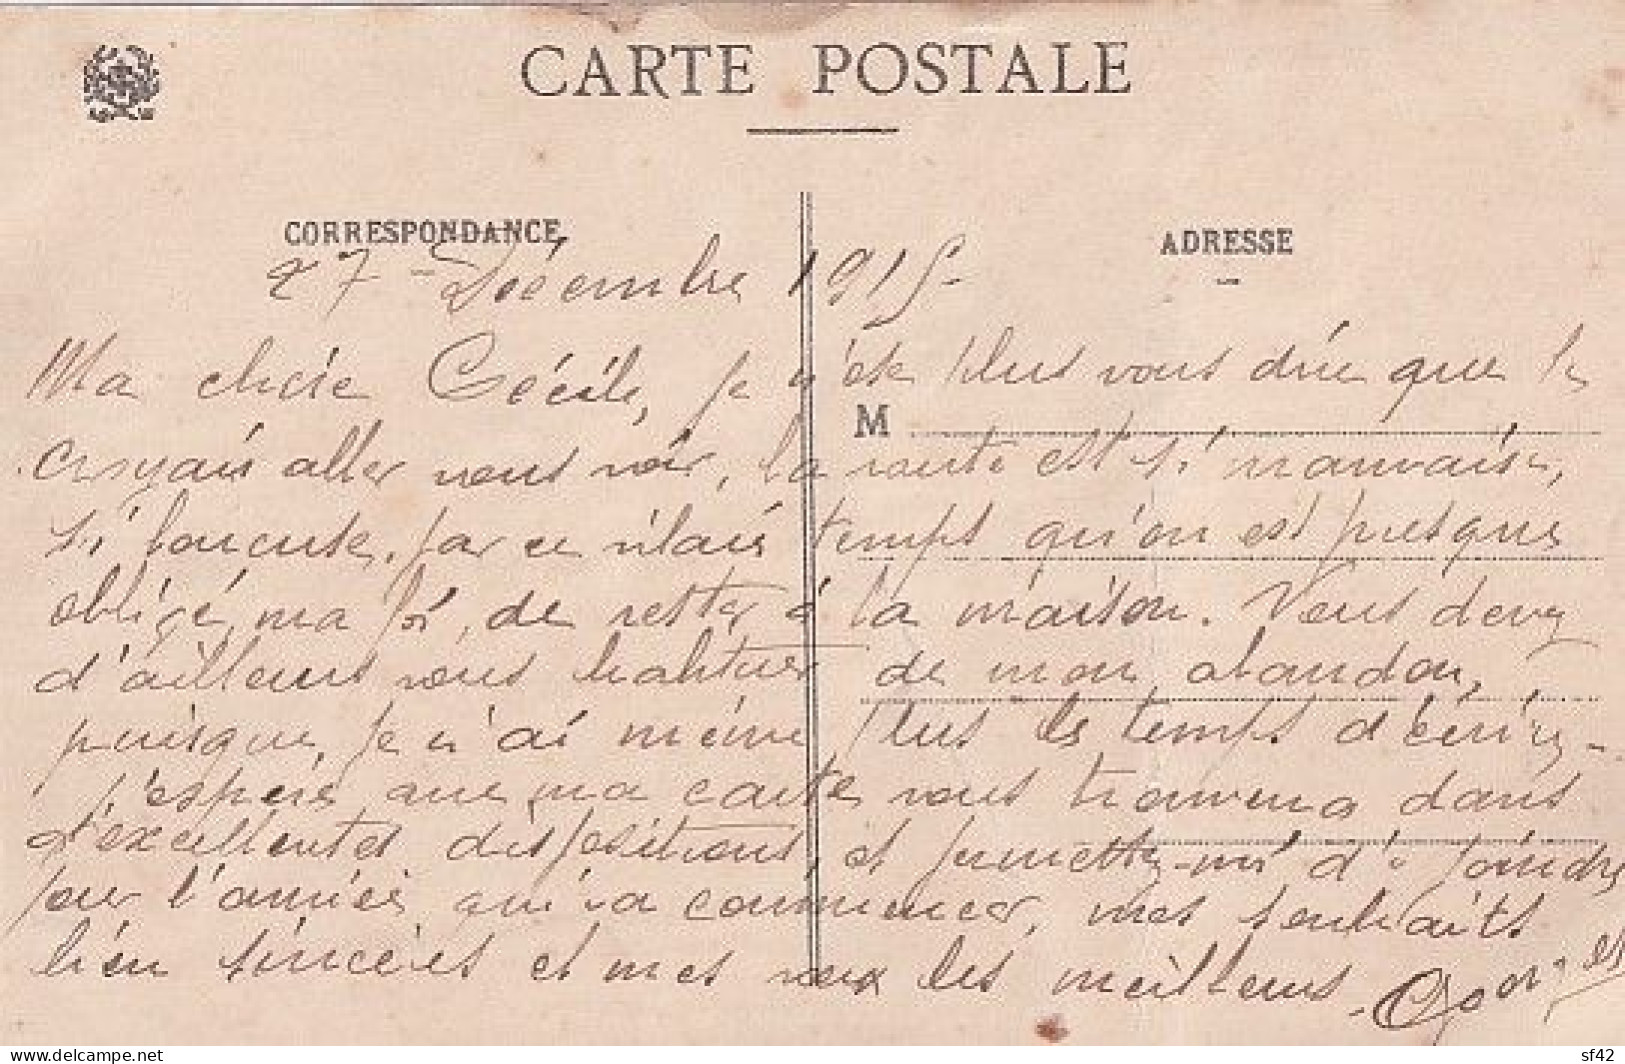 CARTE POSTALE
CORRESPONDANCE
ADRESSE
27 - Décembre 1915 -
Ma chère Cécile, je n'ose plus vous dire que je
M
croyais aller vous voir, la route est si mauvaise,
si par ce vilain temps qu'on est presque
obligé, ma foi, de rester à la maison. Vous devez
d'ailleurs vous habituer de mon abandon,
puisque, je n'ai même plus le temps d'écrire -
j'espère que ma carte vous trouvera dans
d'excellentes dispositions, et permettez-moi d'y joindre
pour l'année qui va commencer, mes souhaits
bien sincères et mes vœux les meilleurs - Georges
www.delcampe.net
sf42